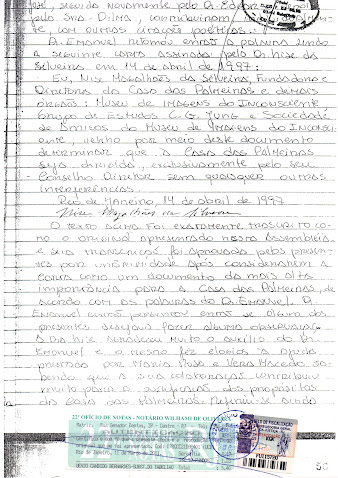 por, seguida novamente pelo Dr. Edgar
pela Sra. Dilma, contribuíram
te, com outras citações poéticas.
O Emanuel retomou então a palavra lendo
a seguinte carta assinada pela Dra Nise da
Silveira em 14 de abril de 1997:
Eu, Nise Magalhães da Silveira, Fundadora e
Diretora da Casa das Palmeiras e demais
órgãos: Museu de Imagens do Inconsciente
Grupo de Estudos C. G. Jung e Sociedade
de Amigos do Museu de Imagens do Inconsci-
ente, venho por meio deste documento
determinar que a Casa das Palmeiras
seja dirigida, exclusivamente pelo seu
Conselho Diretor sem quaisquer outras
interferências.
Rio de Janeiro, 14 de abril de 1997
Nise Magalhães da Silveira
O texto acima foi exatamente transcrito co-
mo o original apresentado nesta Assembléia
e sua transcrição foi aprovada pelos presen-
tes por unanimidade após considerarem a
carta como um documento da mais alta
importância para a Casa das Palmeiras, de
acordo com as palavras do Dr. Emanuel. O
Emanuel então perguntou se algum dos
presentes desejava fazer alguma observação.
A Dra Nise agradeceu muito o auxílio do Dr.
Emanuel e o mesmo fez elogios à ajuda
prestada por Maria e Vera Macedo sa-
bendo que a sua colaboração contribuiu
muito para a dos propósitos
da Casa das Palmeiras. Referiu-se ainda
22º OFICIO DE NOTAS - NOTÁRIO WILHAMI DE OLIVEIRA
AUTENTICAÇÃO
Rio de Janeiro, 11 de
50